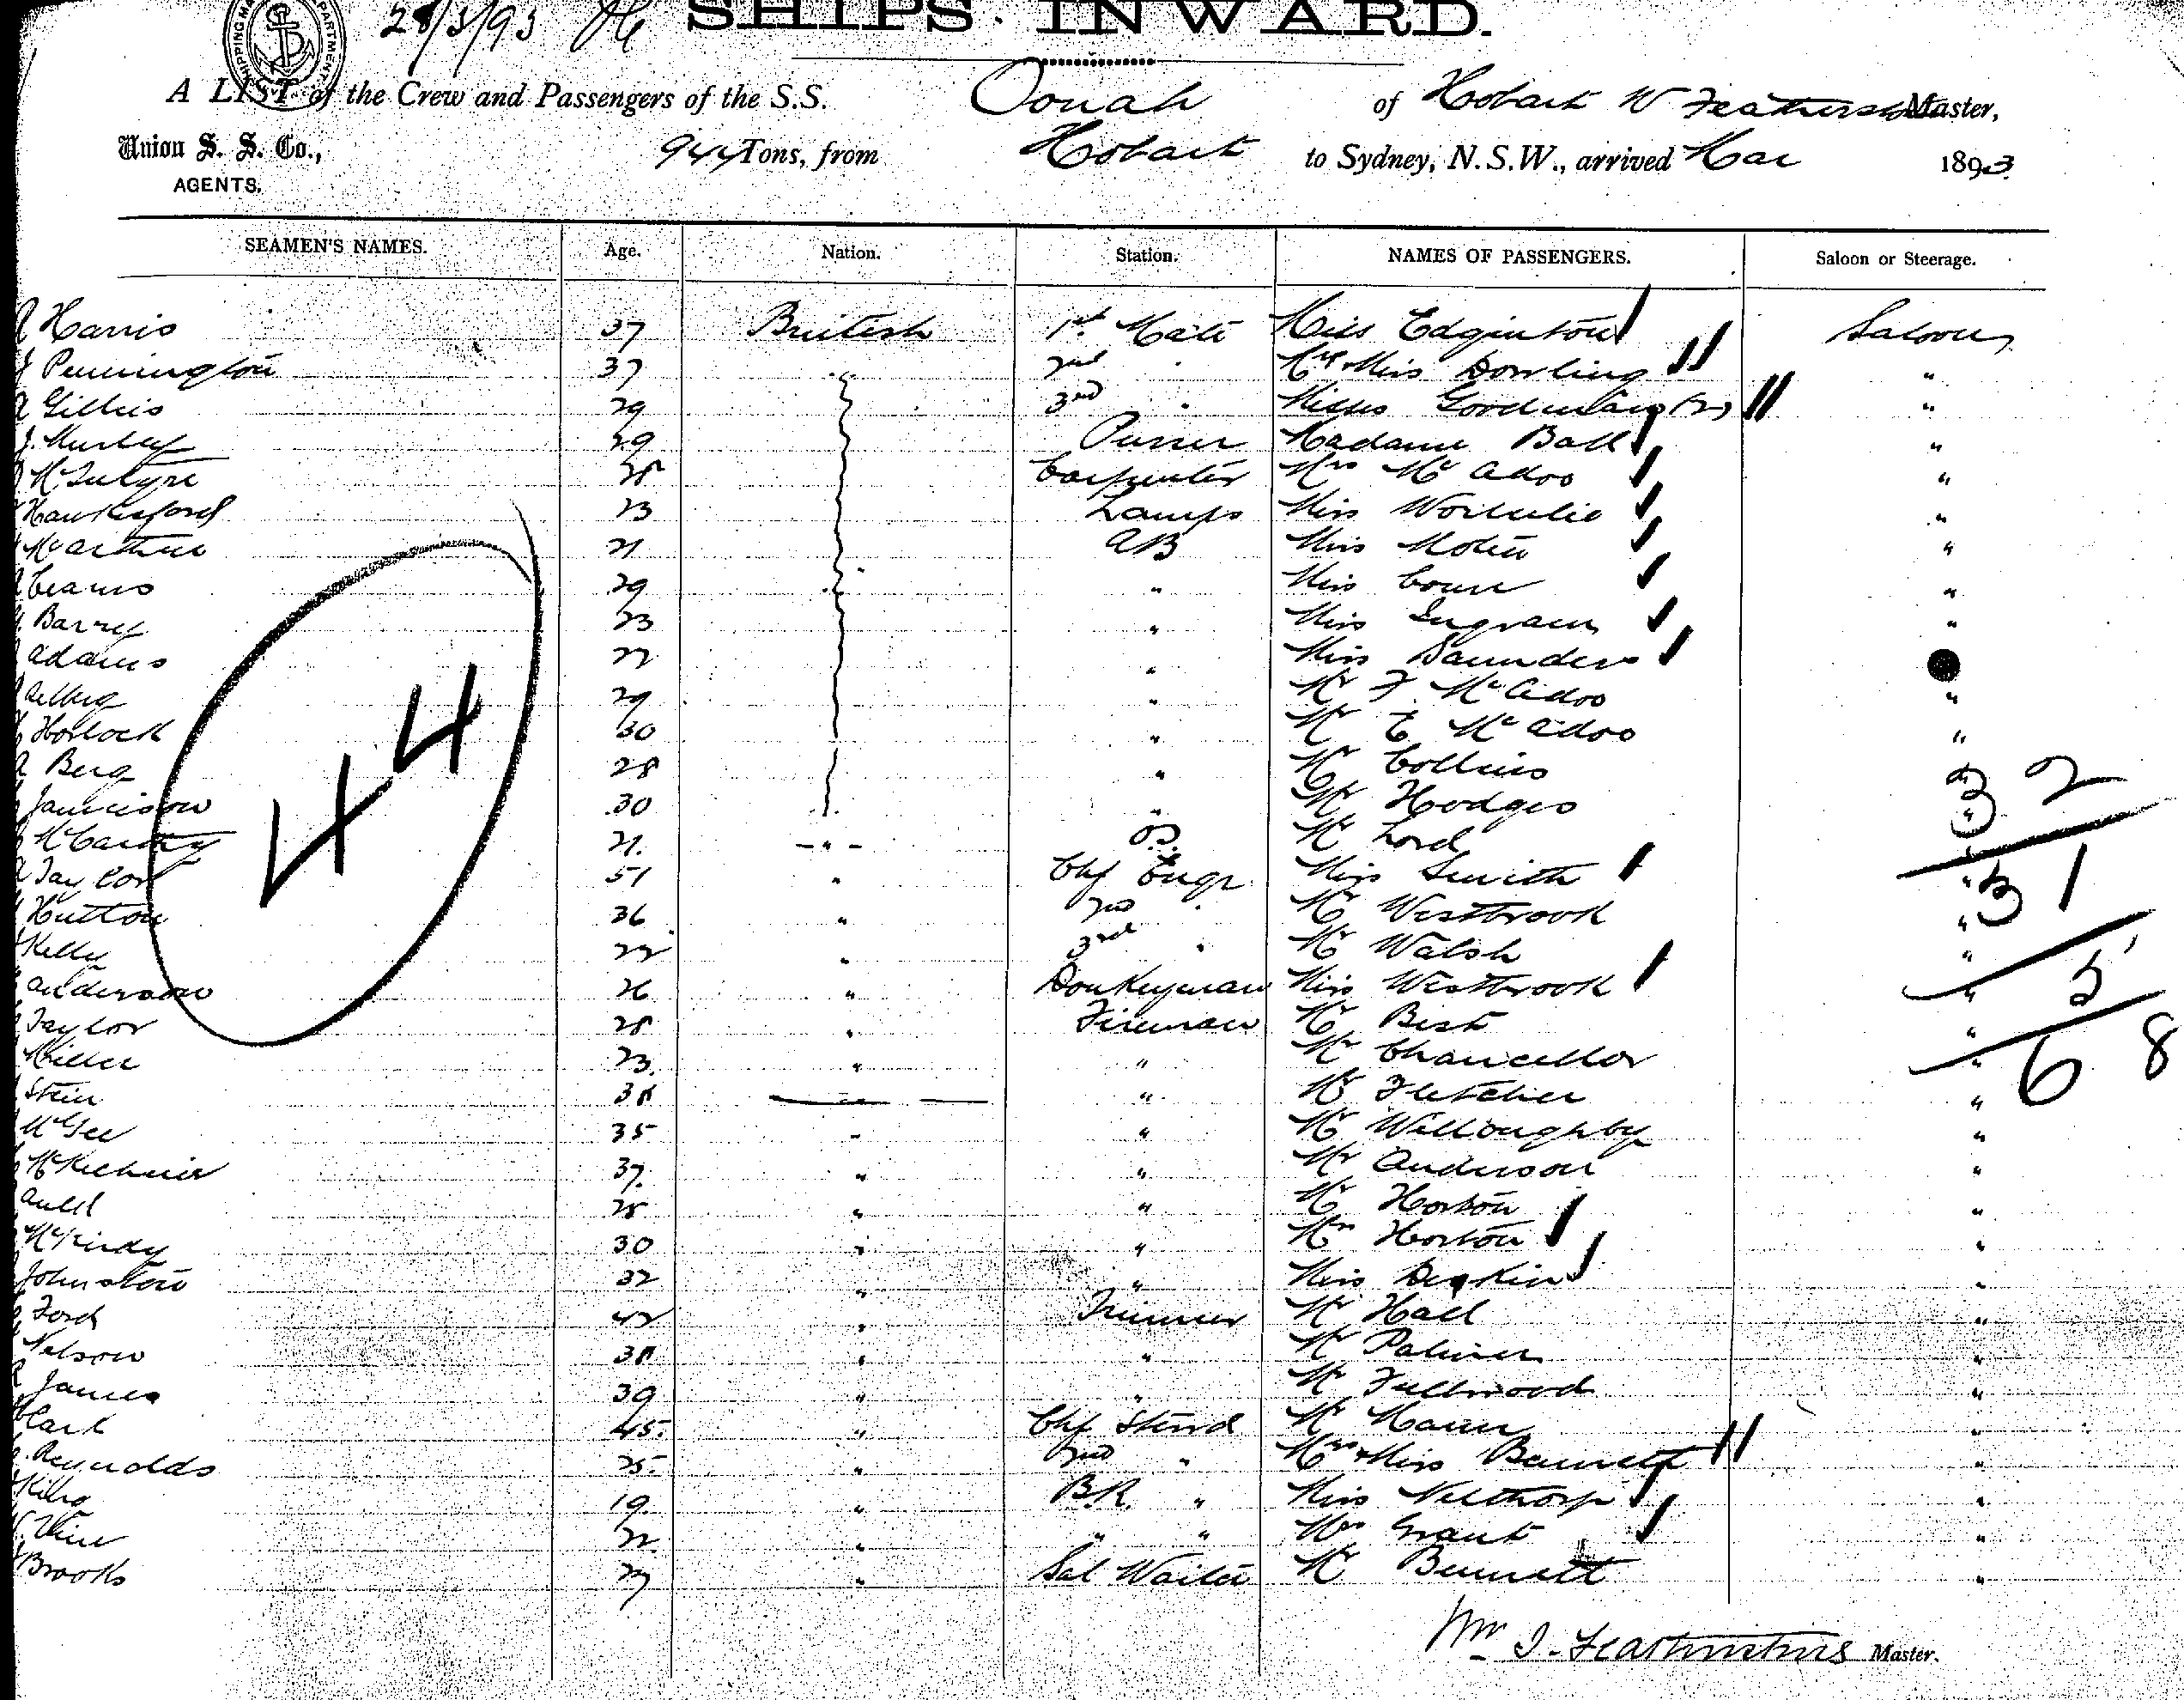 28/3/93
SHIPS INWARD.
A LIST of the Crew and Passengers of the S.S. Oonah of Hobart W Featherstone Master,
Union S. S. Co., AGENTS. 944 Tons, from Hobart to Sydney, N.S.W., arrived Mar 1893
SEAMEN'S NAMES. Age. Nation. Station. NAMES OF PASSENGERS. Saloon or Steerage.
Harris 37 British 1st Mate Miss Edginton Saloon
Pennington 37 2nd " Mrs & Miss Dowling "
Gillies 29 3rd " Misses Goodman (2) "
J. Murley 29 Purser Madame Ball "
McIntyre 28 Carpenter Mrs McAdoo "
Hawkesford 23 Lamps Miss "
McArthur 21 AB Miss "
29 " Miss "
Barry 23 " Miss Ingram "
Adams 22 " Miss Saunders
29 " Mr F. McAdoo "
Horlock 30 " Mr E McAdoo "
Berg 28 " Mr Collins
Jamieson 30 " Mr Hodges "
McCarthy 21 " O.S. Mr Lord "
Taylor 51 " Chf Engr Miss Smith "
Hutton 36 " 2nd " Mr Westbrook "
Kelly 22 " 3rd " Mr Walsh "
Anderson 26 " Donkeyman Miss Westbrook "
Taylor 28 " Fireman Mr Best "
Miller 23 " " Mr Chancellor "
Stein 38 " " Mr Fletcher "
McGee 35 " " Mr Willoughby "
McKechnie 37 " " Mr Anderson "
Auld 28 " " Mr Horton "
McKirdy 30 " " Mrs Horton "
Johnston 32 " " Miss "
Ford 42 " Trimmer Mr Hall "
Nelson 38 " " Mr Palmer "
James 39 " " Mr Fullwood "
45 " Chf Stewd Mr "
Reynolds 25 " 2nd " Mrs & Miss "
19 " B.R. " Miss Nelthorp "
22 " " " Mrs Grant "
Brooks " Sal Waiter Mr Bennett "
44
32
31
5
68
Master.